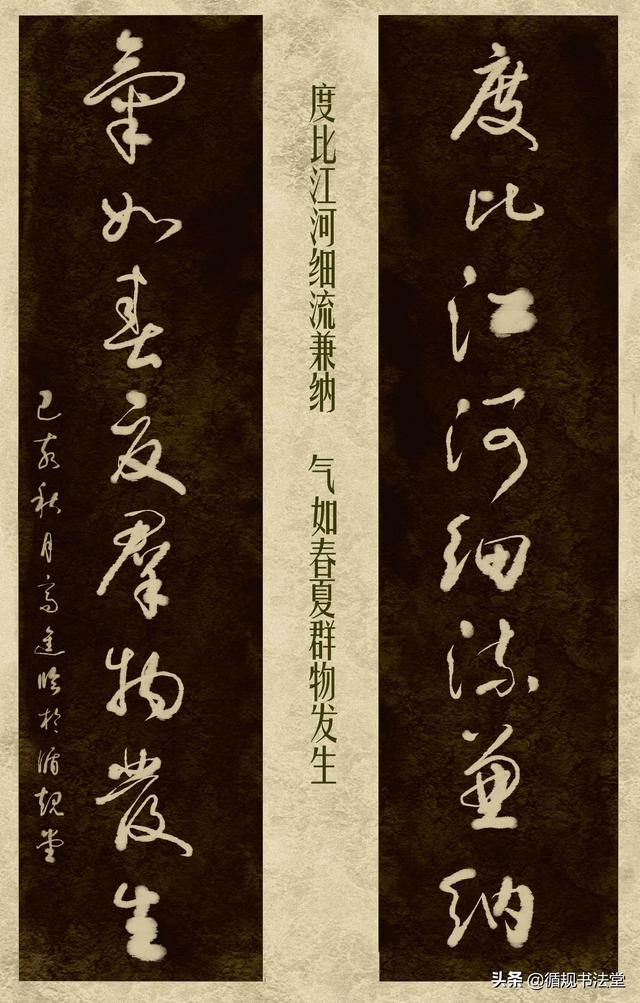 度比江河细流兼纳
度比江河细流兼纳 气如春夏群物发生
氣如春夏羣物發生
己亥秋月高進臨於循規堂
头条 @循规书法堂